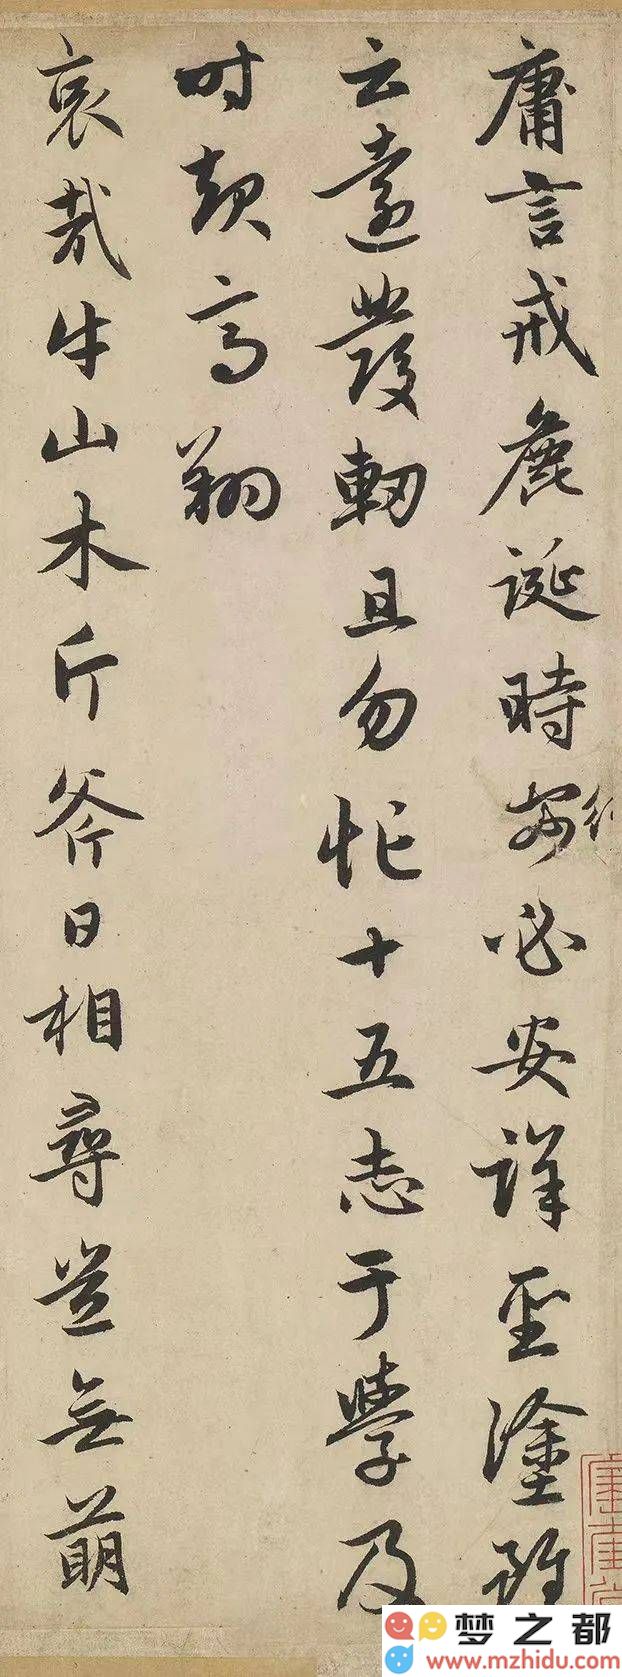 庸言戒麁誕時行必安詳聖塗雖
云遠發軔且勿忙十五志于學及
时起高翔
哀哉牛山木斤斧日相尋豈無萌
梦之都
www.mzhidu.com